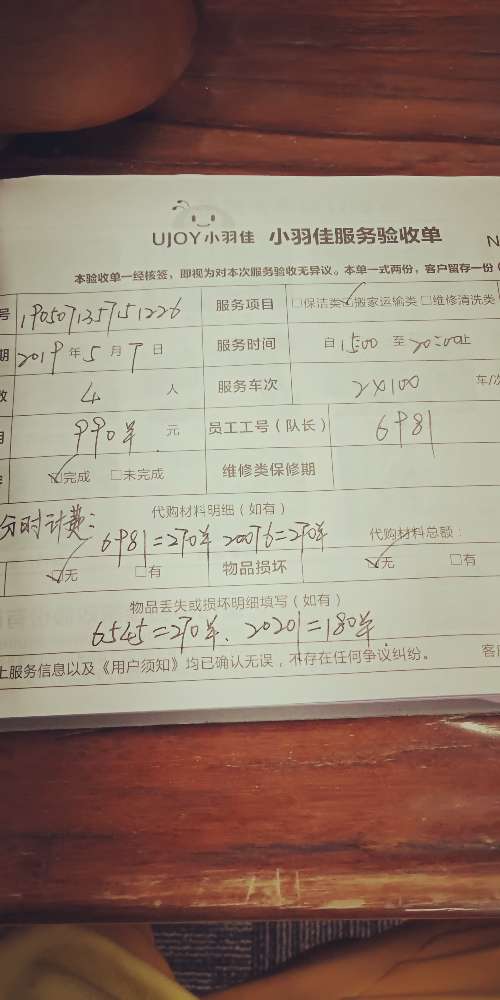 UJOY小羽佳 小羽佳服务验收单
N
本验收单一经核签，即视为对本次服务验收无异议。本单一式两份，客户留存一份（
号 190507135751226 服务项目 □保洁类 ☑搬家运输类 □维修清洗类
期 2019年5月7日 服务时间 自 15:00 至 20:00止
数 4 人 服务车次 2×100 车/次
用 990半 元 员工工号（队长） 6981
☑完成 □未完成 维修类保修期
代购材料明细（如有）
分时计费：
6981=270半 20076=270半 代购材料总额：
☑无 □有 物品损坏 ☑无 □有
物品丢失或损坏明细填写（如有）
6545=270半、20201=180半
上服务信息以及《用户须知》均已确认无误，不存在任何争议纠纷。 客